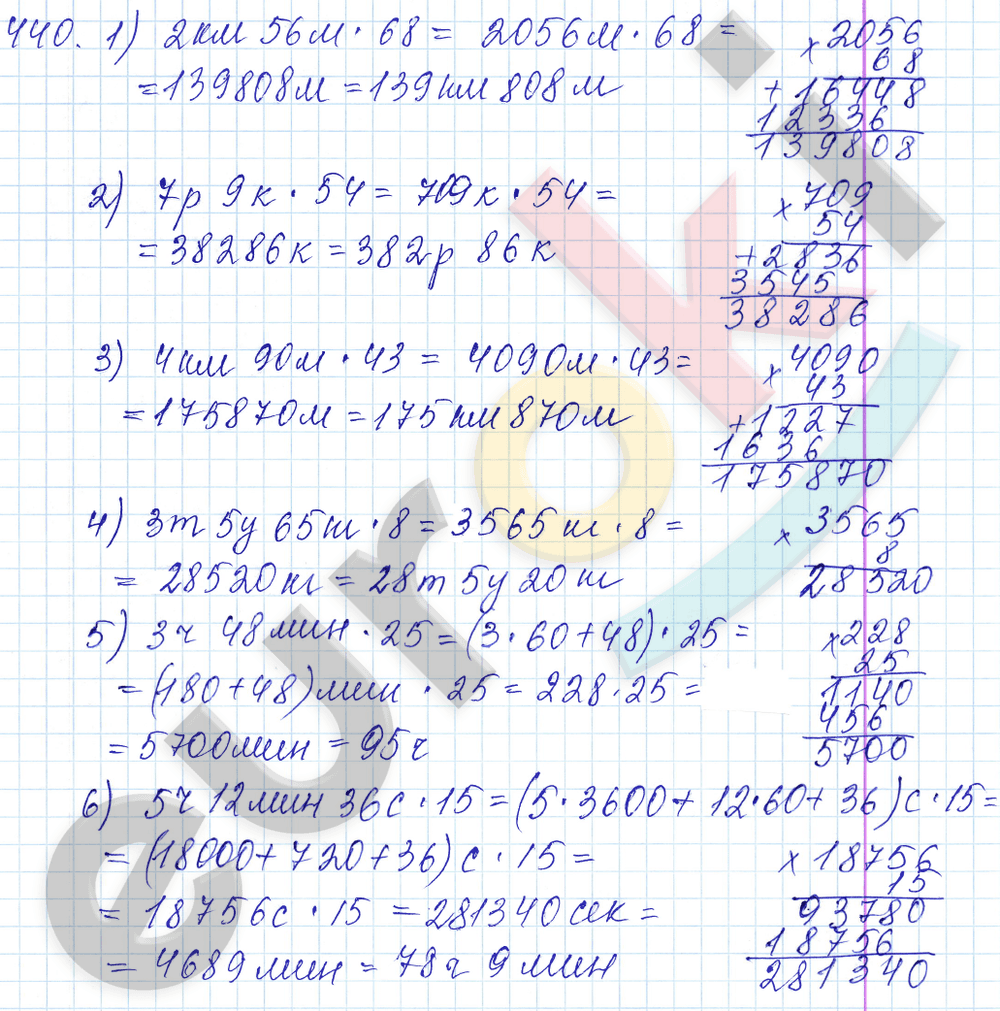 440. 1) 2км 56м · 68 = 2056м · 68 =
= 139808м = 139км 808м
× 2056
68
+ 16448
12336
139808
2) 7р 9к · 54 = 709к · 54 =
= 38286к = 382р 86к
× 709
54
+ 2836
3545
38286
3) 4км 90м · 43 = 4090м · 43 =
= 175870м = 175км 870м
× 4090
43
+ 1227
1636
175870
4) 3т 5ц 65кг · 8 = 3565кг · 8 =
= 28520кг = 28т 5ц 20кг
× 3565
8
28520
5) 3ч 48мин · 25 = (3 · 60 + 48) · 25 =
= (180 + 48)мин · 25 = 228 · 25 =
= 5700мин = 95ч
× 228
25
1140
456
5700
6) 5ч 12мин 36с · 15 = (5 · 3600 + 12 · 60 + 36)с · 15 =
= (18000 + 720 + 36)с · 15 =
= 18756с · 15 = 281340сек =
= 4689мин = 78ч 9мин
× 18756
15
93780
18756
281340
euroki